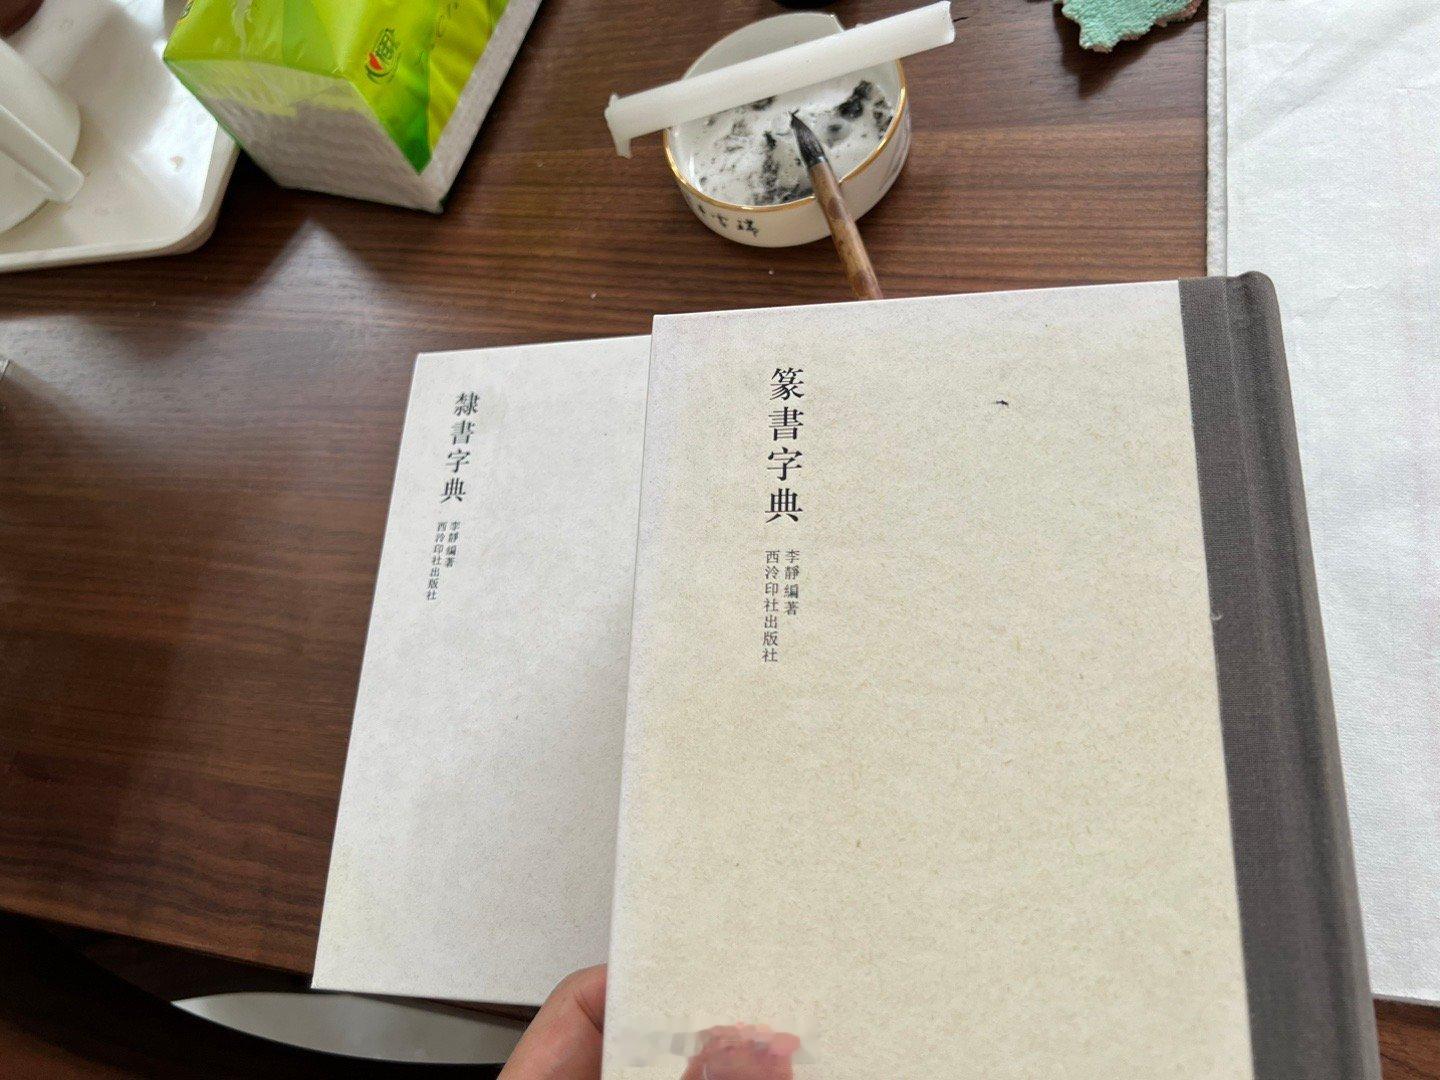 篆書字典
李靜 編著
西泠印社出版社
隸書字典
李靜 編著
西泠印社出版社